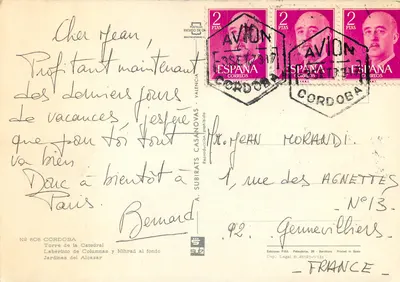 Cher Jean,
Profitant maintenant
des derniers jours
de vacances, j'espère
que pour toi tout
va bien.
Donc à bientôt à
Paris.
Bernard
102 CORDOBA
Torre de la Catedral
Laberinto de Columnas y Mihrad al fondo
Jardines del Alcazar
A. SUBIRATS CASANOVAS
2 PTAS
ESPAÑA
CORREOS
2 PTAS
ESPAÑA
CORREOS
2 PTAS
ESPAÑA
CORREOS
AVION
CORDOBA
AVION
CORDOBA
Mr. JEAN MORANDI.
91 rue des AGNETTES
N° 13
92. Gennevilliers
- FRANCE -